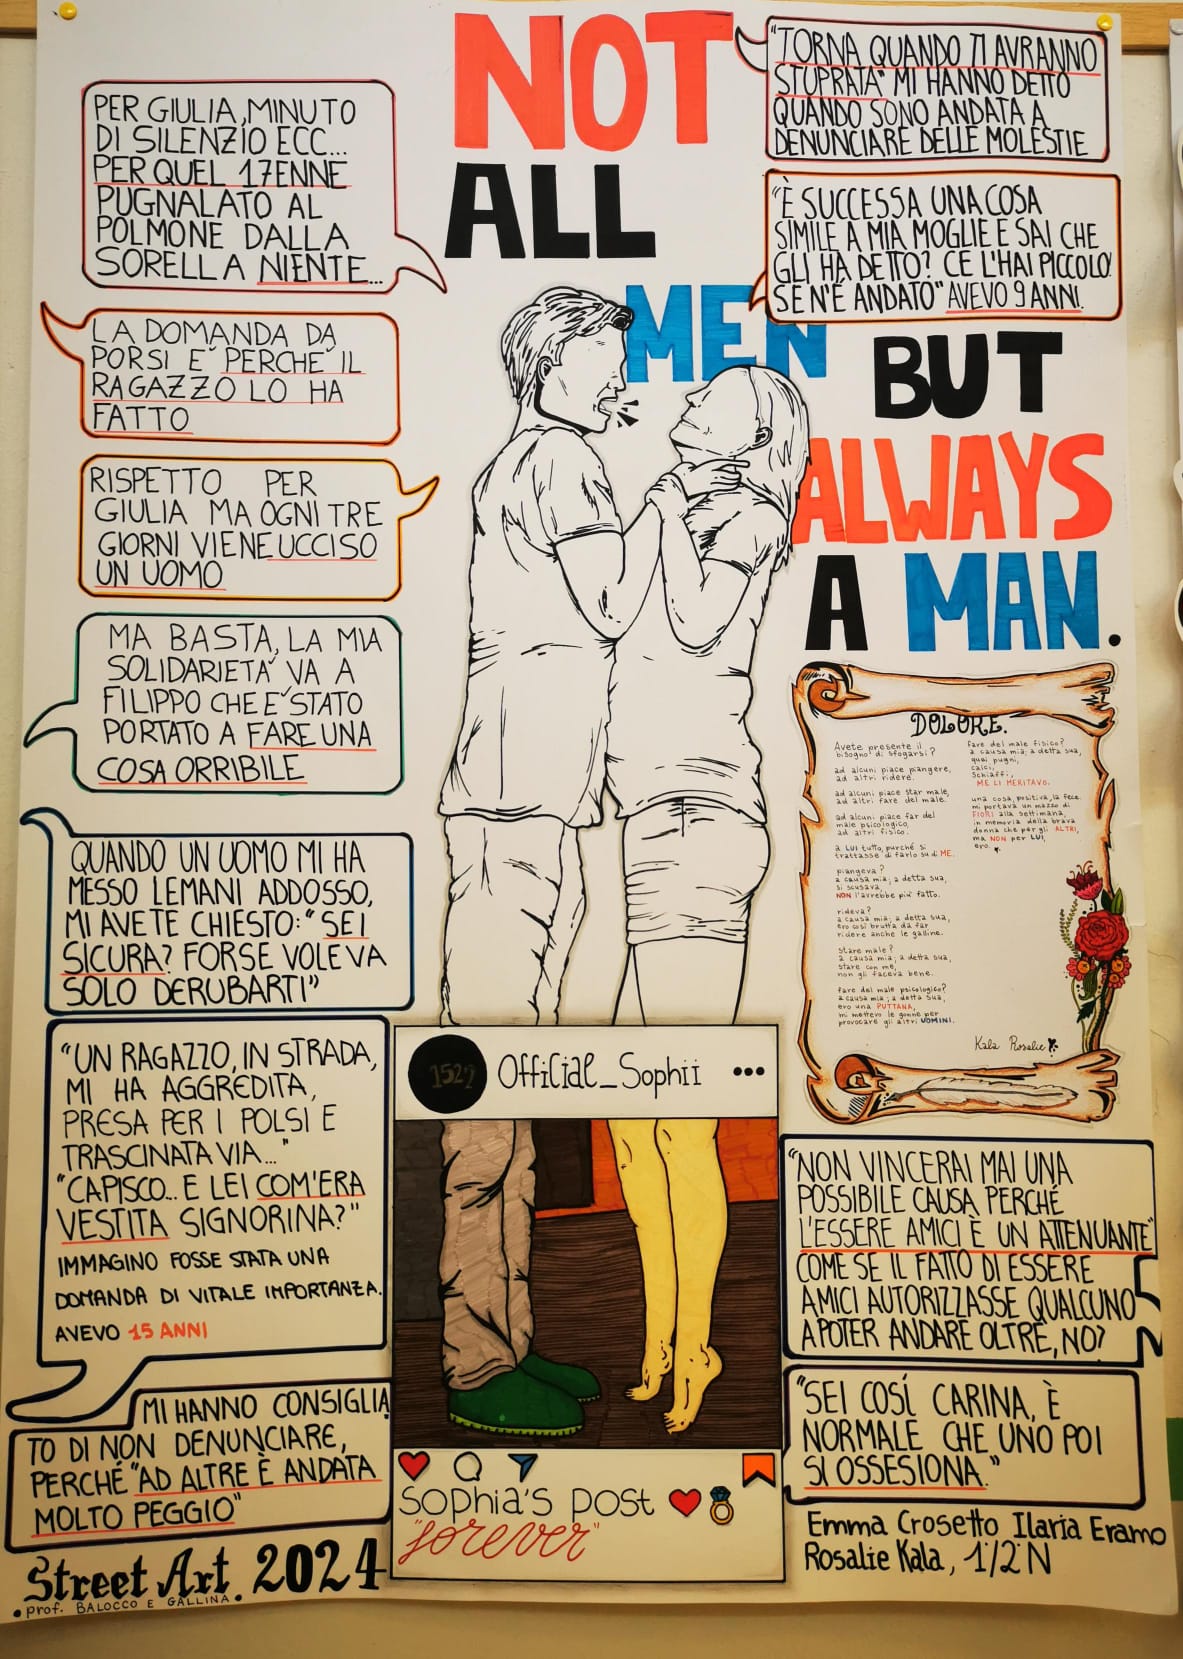 NOT
ALL
MEN
BUT
ALWAYS
A MAN.
PER GIULIA, MINUTO
DI SILENZIO ECC...
PER QUEL 17ENNE
PUGNALATO AL
POLMONE DALLA
SORELLA NIENTE...
LA DOMANDA DA
PORSI E' PERCHE' IL
RAGAZZO LO HA
FATTO
RISPETTO PER
GIULIA MA OGNI TRE
GIORNI VIENE UCCISO
UN UOMO
MA BASTA, LA MIA
SOLIDARIETA' VA A
FILIPPO CHE E' STATO
PORTATO A FARE UNA
COSA ORRIBILE
QUANDO UN UOMO MI HA
MESSO LE MANI ADDOSSO,
MI AVETE CHIESTO: "SEI
SICURA? FORSE VOLEVA
SOLO DERUBARTI"
"UN RAGAZZO, IN STRADA,
MI HA AGGREDITA,
PRESA PER I POLSI E
TRASCINATA VIA..."
"CAPISCO... E LEI COM'ERA
VESTITA SIGNORINA?"
IMMAGINO FOSSE STATA UNA
DOMANDA DI VITALE IMPORTANZA.
AVEVO 15 ANNI
MI HANNO CONSIGLIA
TO DI NON DENUNCIARE,
PERCHÉ "AD ALTRE È ANDATA
MOLTO PEGGIO"
Street Art 2024
• prof. BALOCCO E GALLINA •
"TORNA QUANDO TI AVRANNO
STUPRATA" MI HANNO DETTO
QUANDO SONO ANDATA A
DENUNCIARE DELLE MOLESTIE
"È SUCCESSA UNA COSA
SIMILE A MIA MOGLIE E SAI CHE
GLI HA DETTO? CE L'HAI PICCOLO!
SE N'È ANDATO" AVEVO 9 ANNI.
DOLORE.
Avete presente il
bisogno di sfogarsi?
ad alcuni piace piangere,
ad altri ridere.
ad alcuni piace star male,
ad altri fare del male.
ad alcuni piace far del
male psicologico,
ad altri fisico.
a LUI tutto, purché si
trattasse di farlo su di ME.
piangeva?
a causa mia; a detta sua,
si scusava,
NON l'avrebbe più fatto.
rideva?
a causa mia; a detta sua,
ero così brutta da far
ridere anche le galline.
stare male?
a causa mia; a detta sua,
stare con me,
non gli faceva bene.
fare del male psicologico?
a causa mia; a detta sua,
ero una PUTTANA,
mi mettevo le gonne per
provocare gli altri UOMINI.
fare del male fisico?
a causa mia; a detta sua,
quei pugni,
calci,
schiaffi,
ME LI MERITAVO.
una cosa, positiva, la fece.
mi portava un mazzo di
FIORI alla settimana,
in memoria della brava
donna che per gli ALTRI,
ma NON per LUI,
ero.
Kala Rosalie
1522
Official_Sophii •••
Sophia's post
"forever"
"NON VINCERAI MAI UNA
POSSIBILE CAUSA PERCHÉ
L'ESSERE AMICI È UN ATTENUANTE"
COME SE IL FATTO DI ESSERE
AMICI AUTORIZZASSE QUALCUNO
A POTER ANDARE OLTRE, NO?
"SEI COSÍ CARINA, È
NORMALE CHE UNO POI
SI OSSESIONA."
Emma Crosetto Ilaria Eramo
Rosalie Kala, 1/2 N